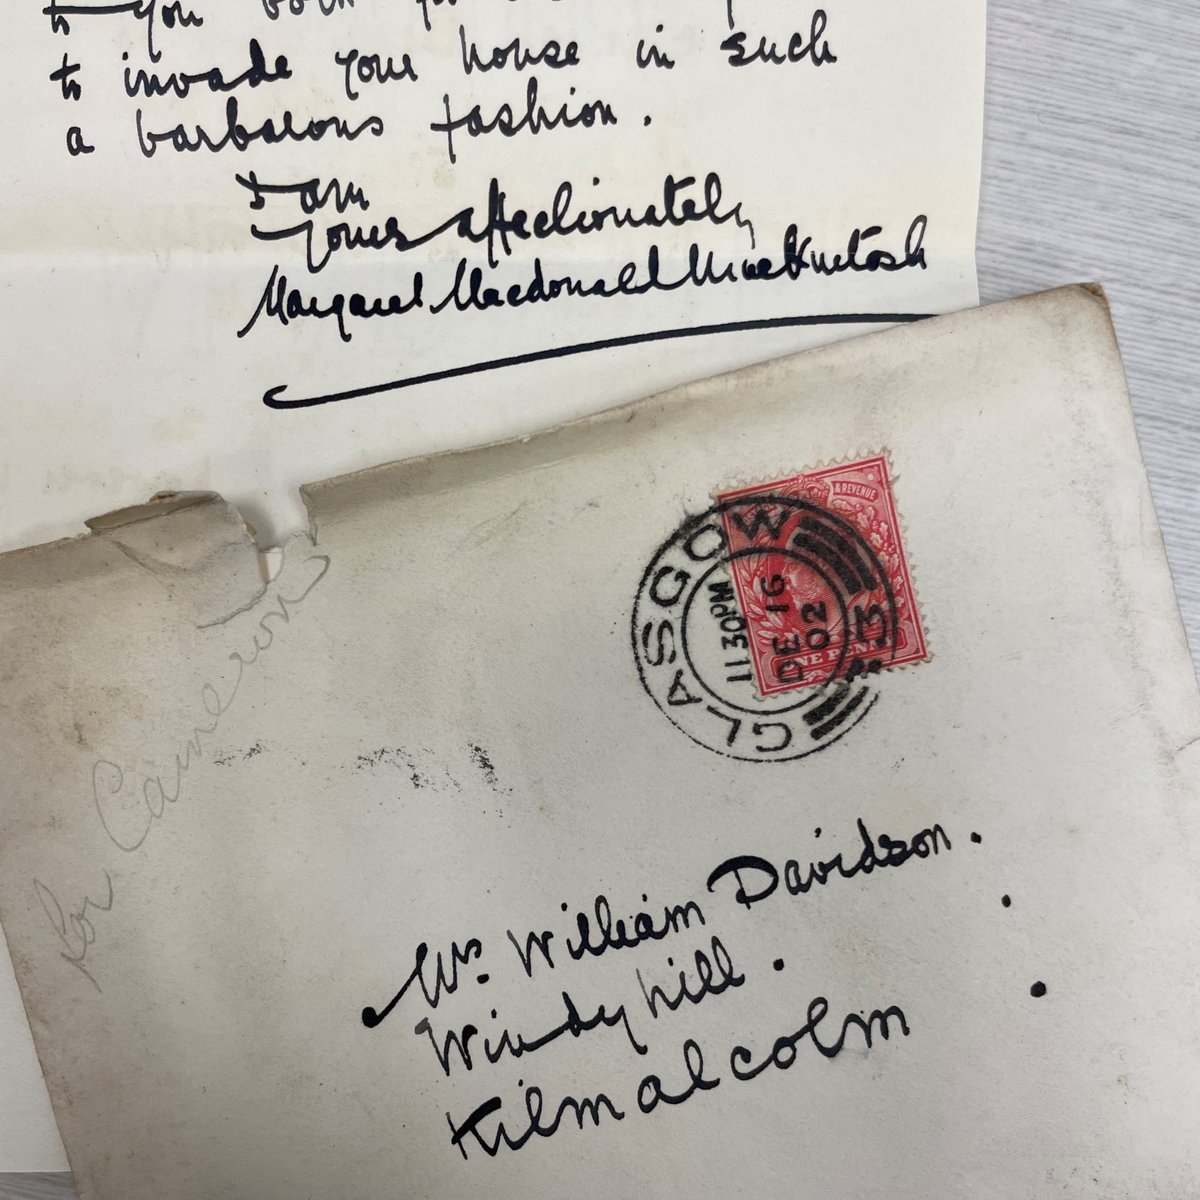 to you both for
to invade your house in such
a barbarous fashion.
I am
Yours affectionately
Margaret Macdonald Mackintosh
& REVENUE
ONE PENNY
GLASGOW
11 30PM
DE 16
02
3
for Cameron
Mrs. William Davidson.
Windyhill.
Kilmalcolm